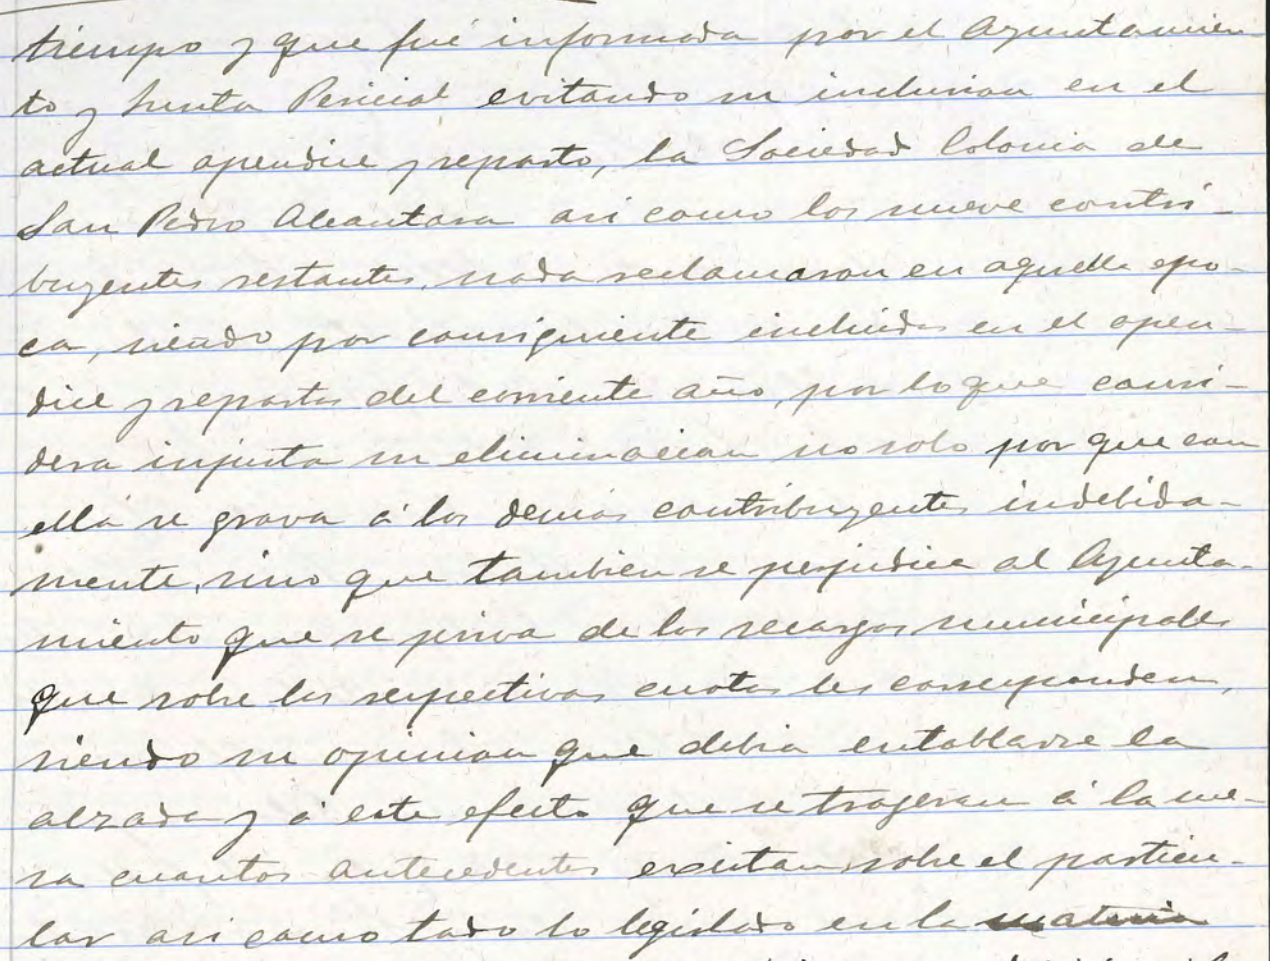 tiempo y que fué informada por el Ayuntamien
to y Junta Pericial evitando su inclusion en el
actual apendice y reparto, la Sociedad Colonia de
San Pedro Alcantara asi como los nueve contri-
buyentes restantes, nada reclamaron en aquella epo-
ca, siendo por consiguiente incluidos en el apen-
dice y repartos del corriente año, por lo que consi-
dera injusta su eliminacion no solo por que con
ella se grava á los demás contribuyentes indebida-
mente, sino que tambien se perjudica al Ayunta-
miento que se priva de los recargos municipales
que sobre las respectivas cuotas les corresponden,
siendo su opinion que debia entablarse la
alzada y á este efecto que se trageran á la me-
sa cuantos antecedentes existan sobre el particu-
lar asi como todo lo legislado en la materia